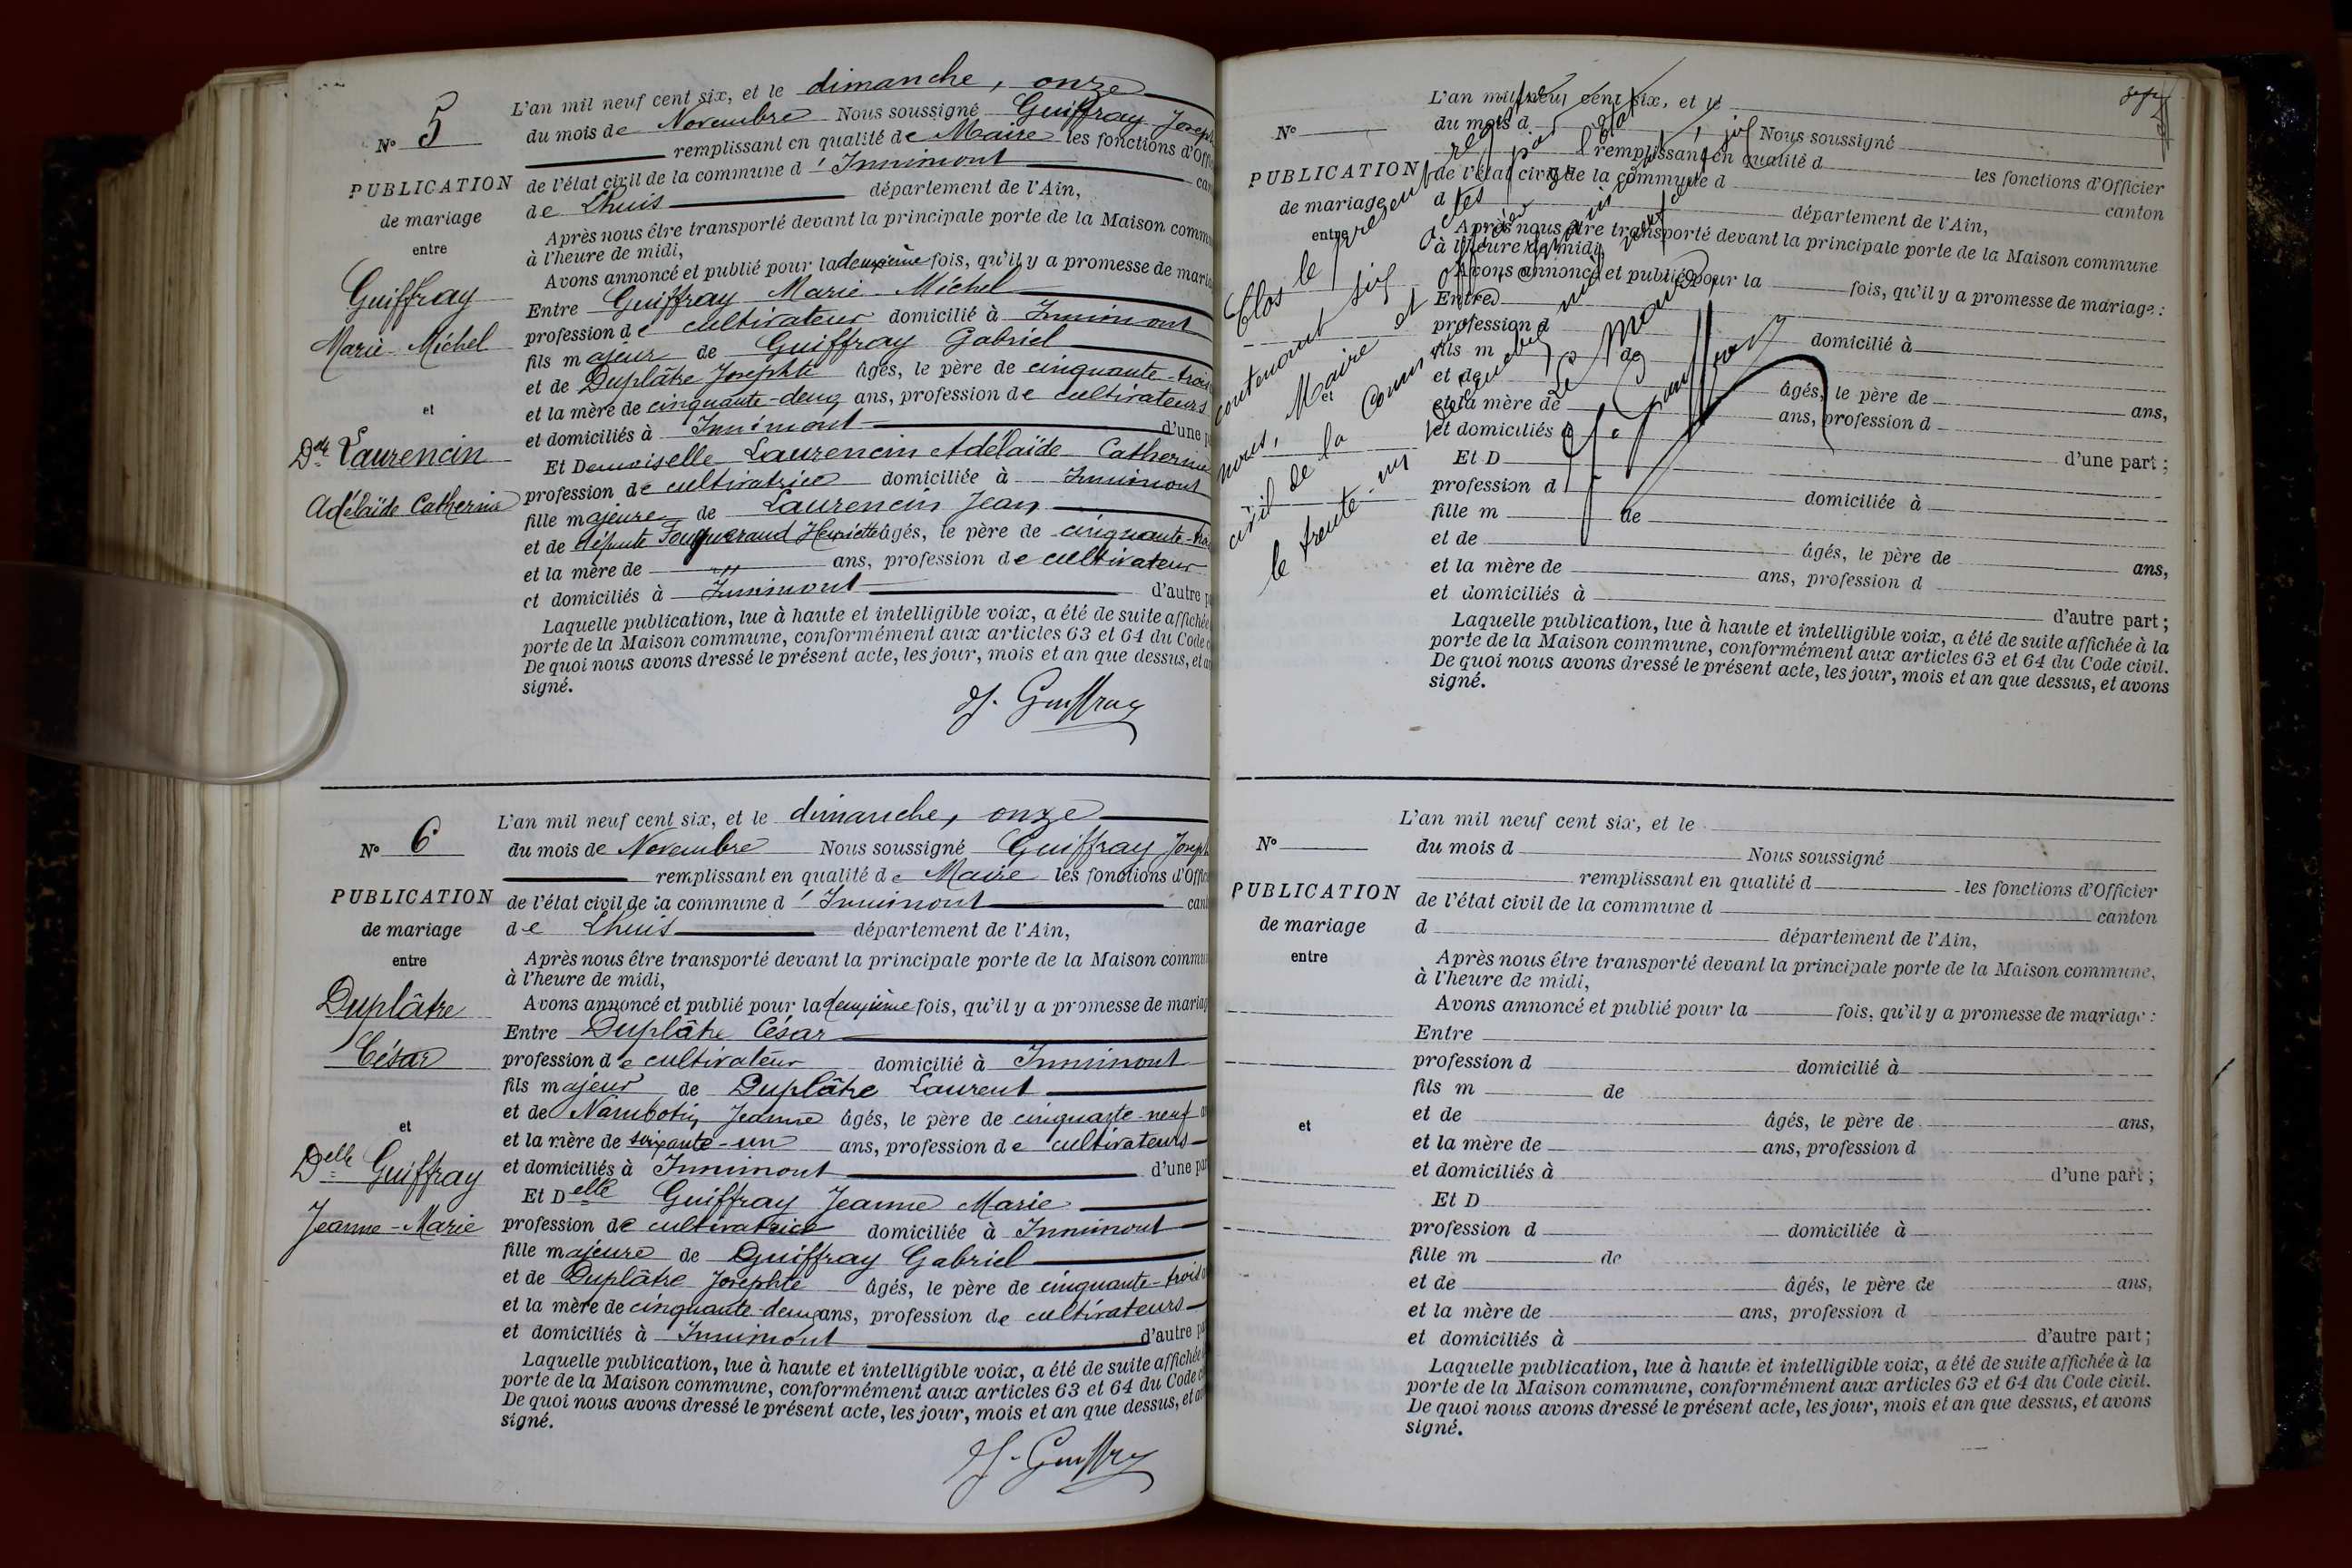 N° 5
PUBLICATION
de mariage
entre
Guiffray
Marie Michel
et
Dlle Laurencin
Adélaïde Catherine
L'an mil neuf cent six, et le dimanche, onze
du mois de Novembre Nous soussigné Guiffray Joseph
remplissant en qualité de Maire les fonctions d'Offi
de l'état civil de la commune d'Innimont can
de Lhuis département de l'Ain,
Après nous être transporté devant la principale porte de la Maison comm
à l'heure de midi,
Avons annoncé et publié pour la deuxième fois, qu'il y a promesse de maria
Entre Guiffray Marie Michel
profession de cultivateur domicilié à Innimont
fils majeur de Guiffray Gabriel
et de Duplâtre Josephte âgés, le père de cinquante-trois
et la mère de cinquante-deux ans, profession de cultivateurs
et domiciliés à Innimont d'une p
Et Demoiselle Laurencin Adélaïde Catherine
profession de cultivatrice domiciliée à Innimont
fille majeure de Laurencin Jean
et de défunte Fouqueraud Henriette âgés, le père de cinquante-
et la mère de " ans, profession de cultivateur
et domiciliés à Innimont d'autre p
Laquelle publication, lue à haute et intelligible voix, a été de suite affichée
porte de la Maison commune, conformément aux articles 63 et 64 du Code c
De quoi nous avons dressé le présent acte, les jour, mois et an que dessus, et a
signé.
J. Guiffray
N° 6
PUBLICATION
de mariage
entre
Duplâtre
César
et
Delle Guiffray
Jeanne-Marie
L'an mil neuf cent six, et le dimanche, onze
du mois de Novembre Nous soussigné Guiffray Joseph
remplissant en qualité de Maire les fonctions d'Offic
de l'état civil de la commune d'Innimont cant
de Lhuis département de l'Ain,
Après nous être transporté devant la principale porte de la Maison commu
à l'heure de midi,
Avons annoncé et publié pour la deuxième fois, qu'il y a promesse de mariag
Entre Duplâtre César
profession de cultivateur domicilié à Innimont
fils majeur de Duplâtre Laurent
et de Nambotin Jeanne âgés, le père de cinquante-neuf a
et la mère de soixante-un ans, profession de cultivateurs
et domiciliés à Innimont d'une par
Et Delle Guiffray Jeanne Marie
profession de cultivatrice domiciliée à Innimont
fille majeure de Guiffray Gabriel
et de Duplâtre Josephte âgés, le père de cinquante-trois a
et la mère de cinquante-deux ans, profession de cultivateurs
et domiciliés à Innimont d'autre pa
Laquelle publication, lue à haute et intelligible voix, a été de suite affichée
porte de la Maison commune, conformément aux articles 63 et 64 du Code c
De quoi nous avons dressé le présent acte, les jour, mois et an que dessus, et av
signé.
J. Guiffray
sept
N°
PUBLICATION
de mariage
entre
L'an mil neuf cent six, et le
du mois d Nous soussigné
remplissant en qualité d les fonctions d'Officier
de l'état civil de la commune d canton
d département de l'Ain,
Après nous être transporté devant la principale porte de la Maison commune
à l'heure de midi,
Avons annoncé et publié pour la fois, qu'il y a promesse de mariage :
Entre
profession d domicilié à
fils m de
et de âgés, le père de ans,
et la mère de ans, profession d
et domiciliés à d'une part ;
Et D
profession d domiciliée à
fille m de
et de âgés, le père de ans,
et la mère de ans, profession d
et domiciliés à d'autre part ;
Laquelle publication, lue à haute et intelligible voix, a été de suite affichée à la
porte de la Maison commune, conformément aux articles 63 et 64 du Code civil.
De quoi nous avons dressé le présent acte, les jour, mois et an que dessus, et avons
signé.
Clos le présent registre
contenant six actes par
nous, Maire et officier de l'état
civil de la Commune d'Innimont
le trente-un décembre mil neuf cent six
Le Maire
J. Guiffray
N°
PUBLICATION
de mariage
entre
et
L'an mil neuf cent six, et le
du mois d Nous soussigné
remplissant en qualité d les fonctions d'Officier
de l'état civil de la commune d canton
d département de l'Ain,
Après nous être transporté devant la principale porte de la Maison commune,
à l'heure de midi,
Avons annoncé et publié pour la fois, qu'il y a promesse de mariage :
Entre
profession d domicilié à
fils m de
et de âgés, le père de ans,
et la mère de ans, profession d
et domiciliés à d'une part ;
Et D
profession d domiciliée à
fille m de
et de âgés, le père de ans,
et la mère de ans, profession d
et domiciliés à d'autre part ;
Laquelle publication, lue à haute et intelligible voix, a été de suite affichée à la
porte de la Maison commune, conformément aux articles 63 et 64 du Code civil.
De quoi nous avons dressé le présent acte, les jour, mois et an que dessus, et avons
signé.